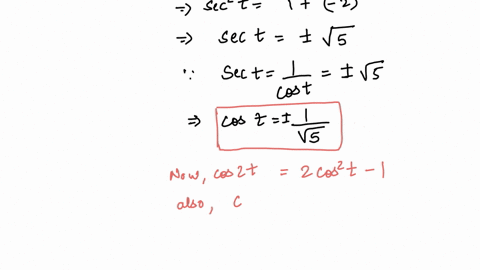 ⇒ sec² t = 1 + (-2)
⇒ sec t = ± √5
∵ sec t = 1/cos t = ± √5
⇒ cos t = ± 1/√5
Now, cos 2t = 2 cos² t - 1
also, C